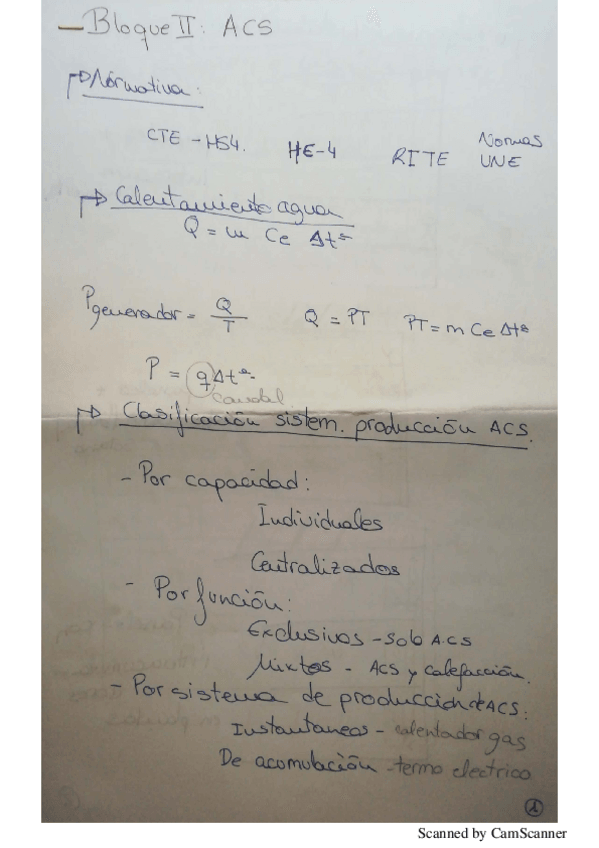 — Bloque II: ACS
→ Normativa:
CTE - HS4. HE-4 RITE Normas UNE
→ Calentamiento agua
Q = m Ce Δtª
Pgenerador = Q/T Q = PT PT = m Ce Δtª
P = q Δtª
caudal
→ Clasificación sistem. producción ACS.
- Por capacidad:
Individuales
Centralizados
- Por función:
Exclusivos - solo ACS
Mixtos - ACS y calefacción.
- Por sistema de producción de ACS:
Instantaneos - calentador gas
De acomulación - termo electrico
1
Scanned by CamScanner